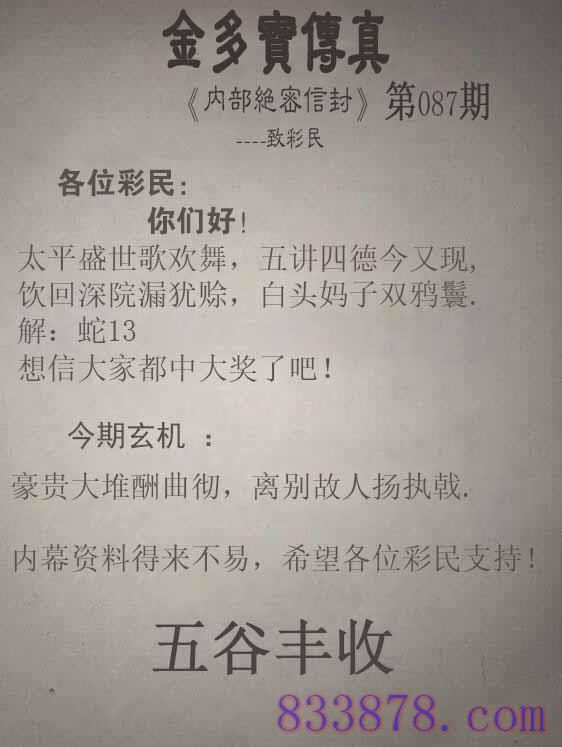 金多寶傳真
《内部絕密信封》第087期
----致彩民
各位彩民:
你们好!
太平盛世歌欢舞，五讲四德今又现,
饮回深院漏犹赊，白头妈子双鸦鬟.
解：蛇13
想信大家都中大奖了吧！
今期玄机 ：
豪贵大堆酬曲彻，离别故人扬执戟.
内幕资料得来不易，希望各位彩民支持！
五谷丰收
833878.com